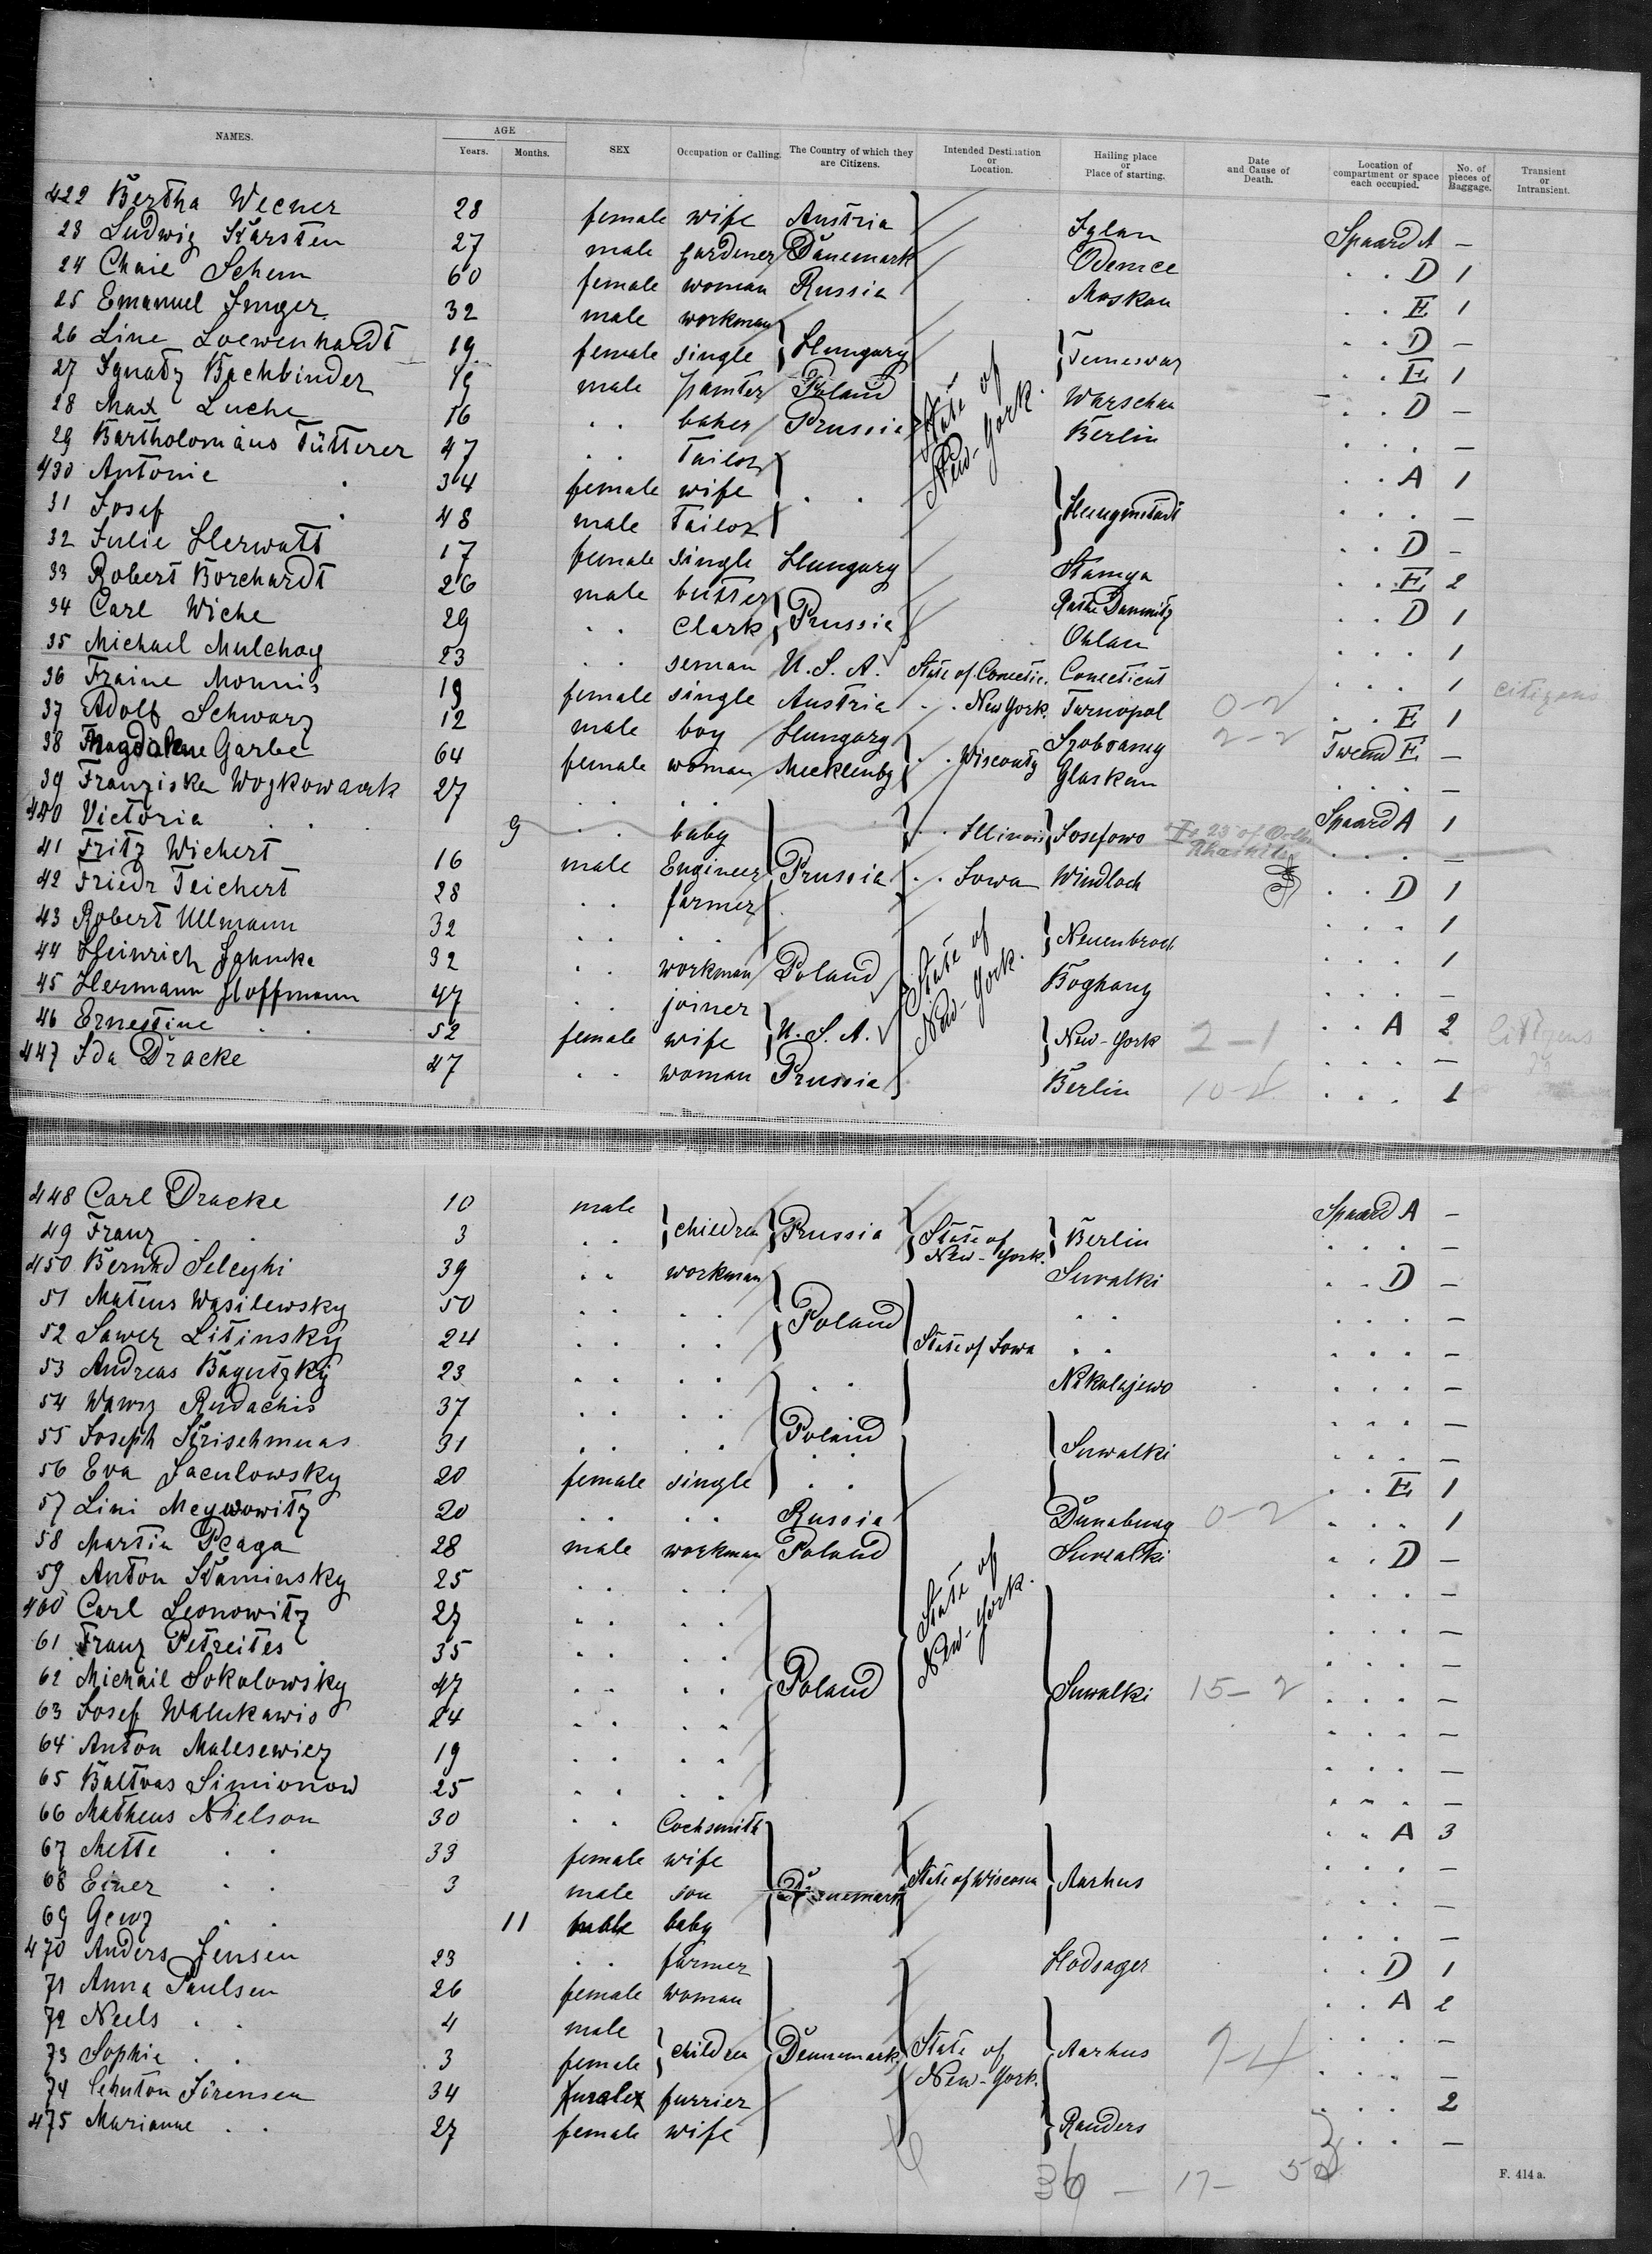 NAMES. AGE SEX Occupation or Calling. The Country of which they are Citizens. Intended Destination or Location. Hailing place or Place of starting. Date and Cause of Death. Location of compartment or space each occupied. No. of pieces of Baggage. Transient or Intransient.
Years. Months.
422 Bertha Wecner 28 female wife Austria Iglau Spaard A —
23 Ludwig Karsten 27 male gardener Dänemark Odense . . D 1
24 Chaie Schem 60 female woman Russia Moskau . . E 1
25 Emanuel Inger 32 male workman . . D —
26 Line Loewenhardt 19 female single } Hungary } Temeswar . . E 1
27 Ignatz Bachbinder 19 male painter Poland State of New-York. Warschau . . D —
28 Max Luche 16 . . baker Prussia Berlin . . . —
29 Bartholomäus Fütterer 47 . . Tailor . . A 1
430 Antonie . 34 female wife . . . . . —
31 Josef . 48 male Tailor . . D —
32 Julie Herwatt 17 female single Hungary Stamya . . E 2
33 Robert Borchardt 26 male . . D 1
34 Carl Wiche 29 . . Clark } Prussia Ohlau . . . 1
35 Michael Mulchay 23 . . seman U.S.A. State of Conectic. Conecticut . . . 1 citizens
36 Fraine Mounis 19 female single Austria . . New York. Tarnopol 0-2 . . E 1
37 Adolf Schwarz 12 male boy Hungary 2-2 Tweed E —
38 Magdalene Garbe 64 female woman Mecklenbg . . Glaskau . . . —
39 Franziska Wozkowaak 27 . . . . Spaard A 1
440 Victoria . . 9 . . baby . . Illinois Josefowo . . . —
41 Fritz Wichert 16 male Engineer Prussia . . Iowa Windloch . . D 1
42 Friedr Teichert 28 . . farmer . . . 1
43 Robert Ullmann 32 . . . . State of New-York. } Neuenbroch . . . 1
44 Heinrich Jahnke 32 . . workman Poland Boghang . . . —
45 Hermann Hoffmann 47 . . joiner . . A 2
46 Ernestine . . 52 female wife } U.S.A. } New-York 2-1 . . . — Citizens
447 Ida Dracke 47 . . woman Prussia Berlin 10-4 . . . 1
448 Carl Dracke 10 male Spaard A —
49 Franz . . 3 . . } children } Prussia } State of New-York. } Berlin . . . —
450 Bernhd Seleghi 39 . . workman Suwalki . . D —
51 Mateus Wasilewsky 50 . . . . Poland . . . . . —
52 Sawer Litinsky 24 . . . . State of Iowa . . . . . —
53 Andreas Bagutzky 23 . . . . . . Nikolajewo . . . —
54 Wawrz Rudachis 37 . . . . Poland . . . —
55 Joseph Krischmuas 31 . . . . } Suwalki . . . —
56 Eva Jaculowsky 20 female single . . . . E 1
57 Lini Meywowitz 20 . . . . Russia Dünaburg 0-2 . . . 1
58 Martin Peaga 28 male workman Poland State of New-York. Suwalki . . D —
59 Anton Kaminsky 25 . . . . . . . —
460 Carl Leonowitz 27 . . . . . . . —
61 Franz Petreites 35 . . . . . . . —
62 Michail Sokolowsky 47 . . . . Poland Suwalki 15-2 . . . —
63 Josef Walukawis 24 . . . . . . . —
64 Anton Malesewicz 19 . . . . . . . —
65 Baltras Simionow 25 . . . . . . . —
66 Matheus Nielson 30 . . Cocksmith . . A 3
67 Mette . . 33 female wife . . . —
68 Einer . . 3 male son Dänemark State of Wisconsin Aarhus . . . —
69 Georg . . 11 male baby . . . —
470 Anders Jensen 23 . . farmer Hodsager . . D 1
71 Anna Paulsen 26 female woman . . A 2
72 Neels . . 4 male . . . —
73 Sophie . . 3 female } children Dennemark State of New-York. Aarhus 7-4 . . . —
74 Jörensen 34 furrier . . . 2
475 Marianne . . 27 female wife } Randers . . . —
36 — 17 — 52
F. 414 a.